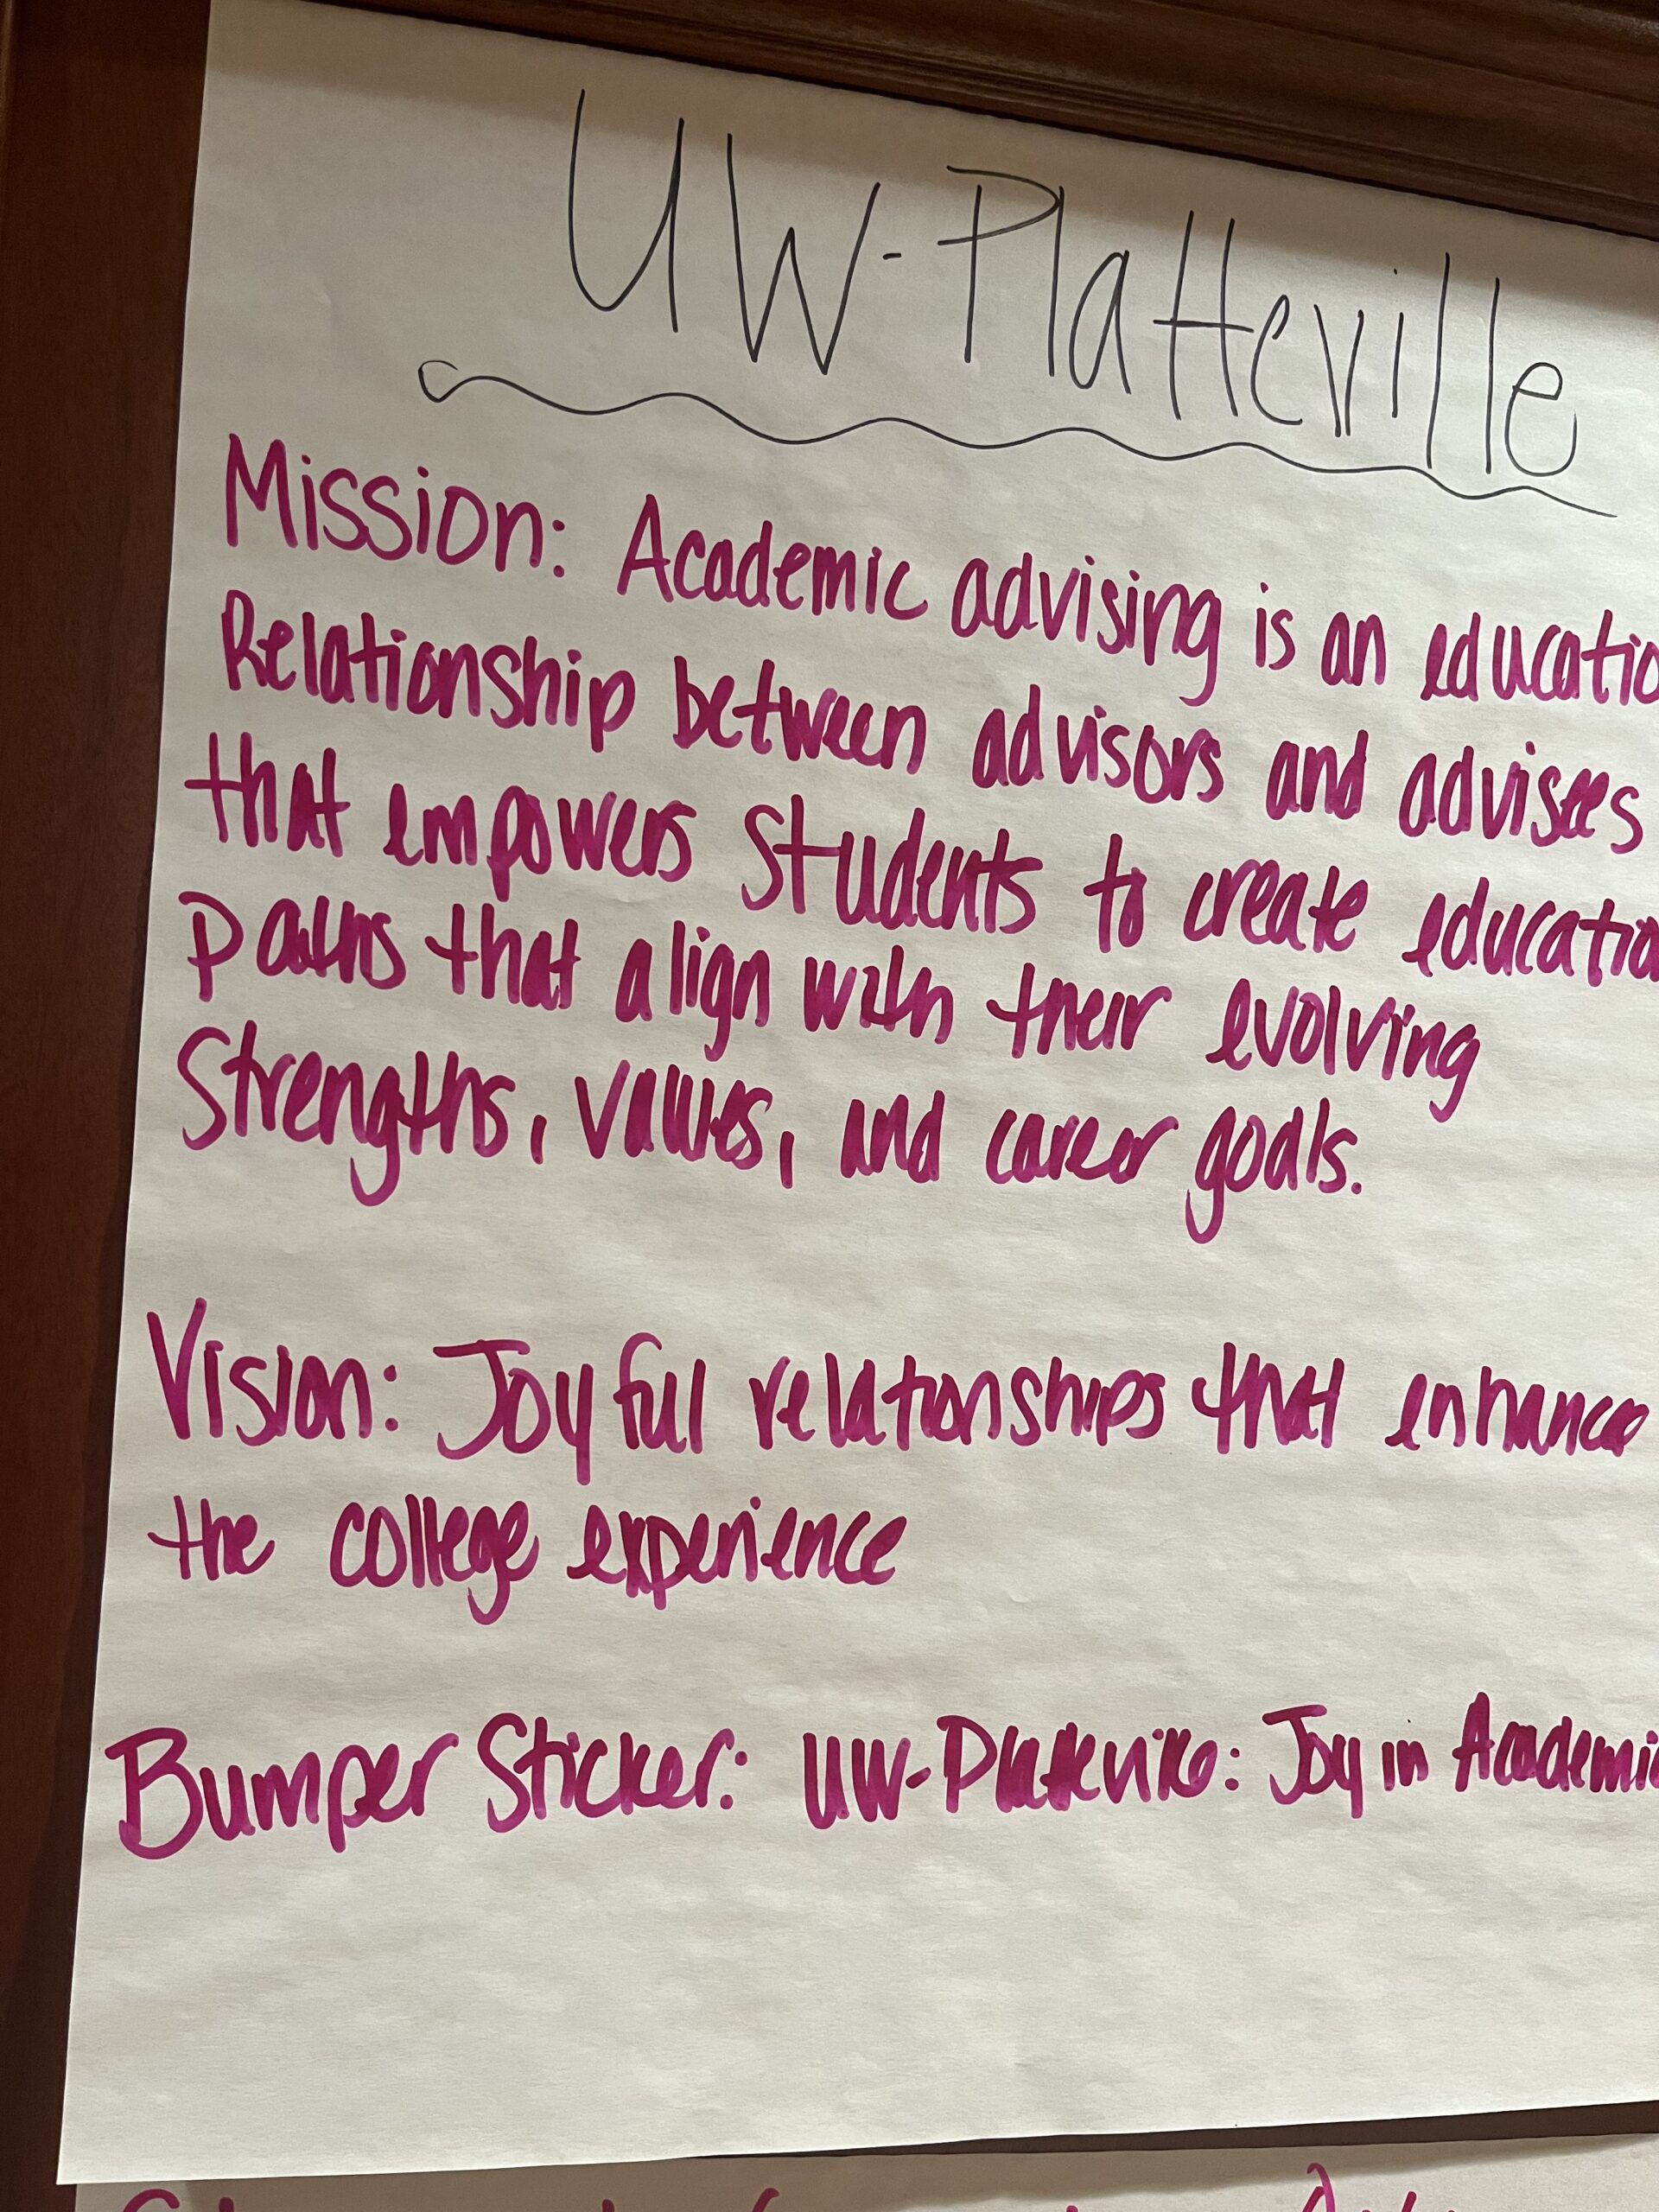 UW-Platteville
Mission: Academic advising is an educatio
Relationship between advisors and advisees
that empowers students to create educatio
paths that align with their evolving
Strengths, values, and career goals.
Vision: Joyful relationships that enhance
the college experience
Bumper Sticker: UW-Platteville: Joy in Academi